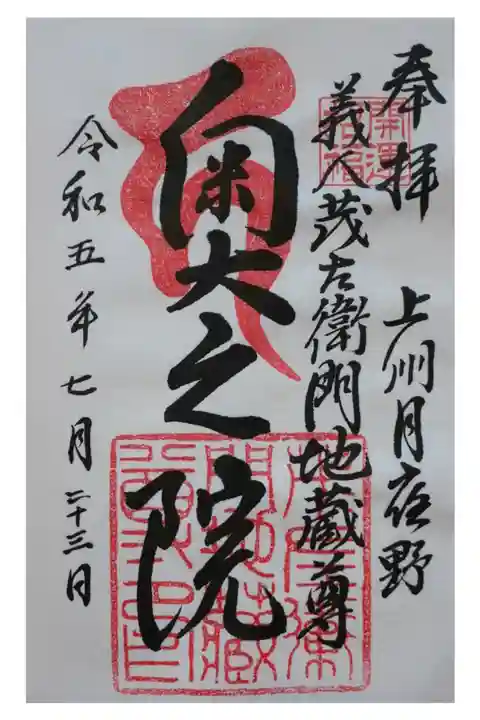 奉拝
上州月夜野
義人茂左衛門地蔵尊
奥之院
令和五年七月二十三日
開運